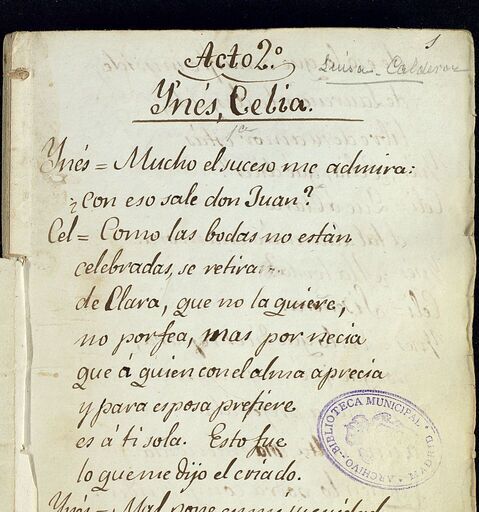 1
Acto 2º
Luisa Calderon
Ynés, Celia.
1ª
Ynés = Mucho el suceso me admira:
¿con eso sale don Juan?
Cel = Como las bodas no están
celebradas, se retira
de Clara, que no la quiere,
no por fea, mas por necia
que á quien con el alma aprecia
y para esposa prefiere
es á ti sola. Esto fue
lo que me dijo el criado.
Ynés = Mal pone en mi
ARCHIVO-BIBLIOTECA MUNICIPAL MADRID